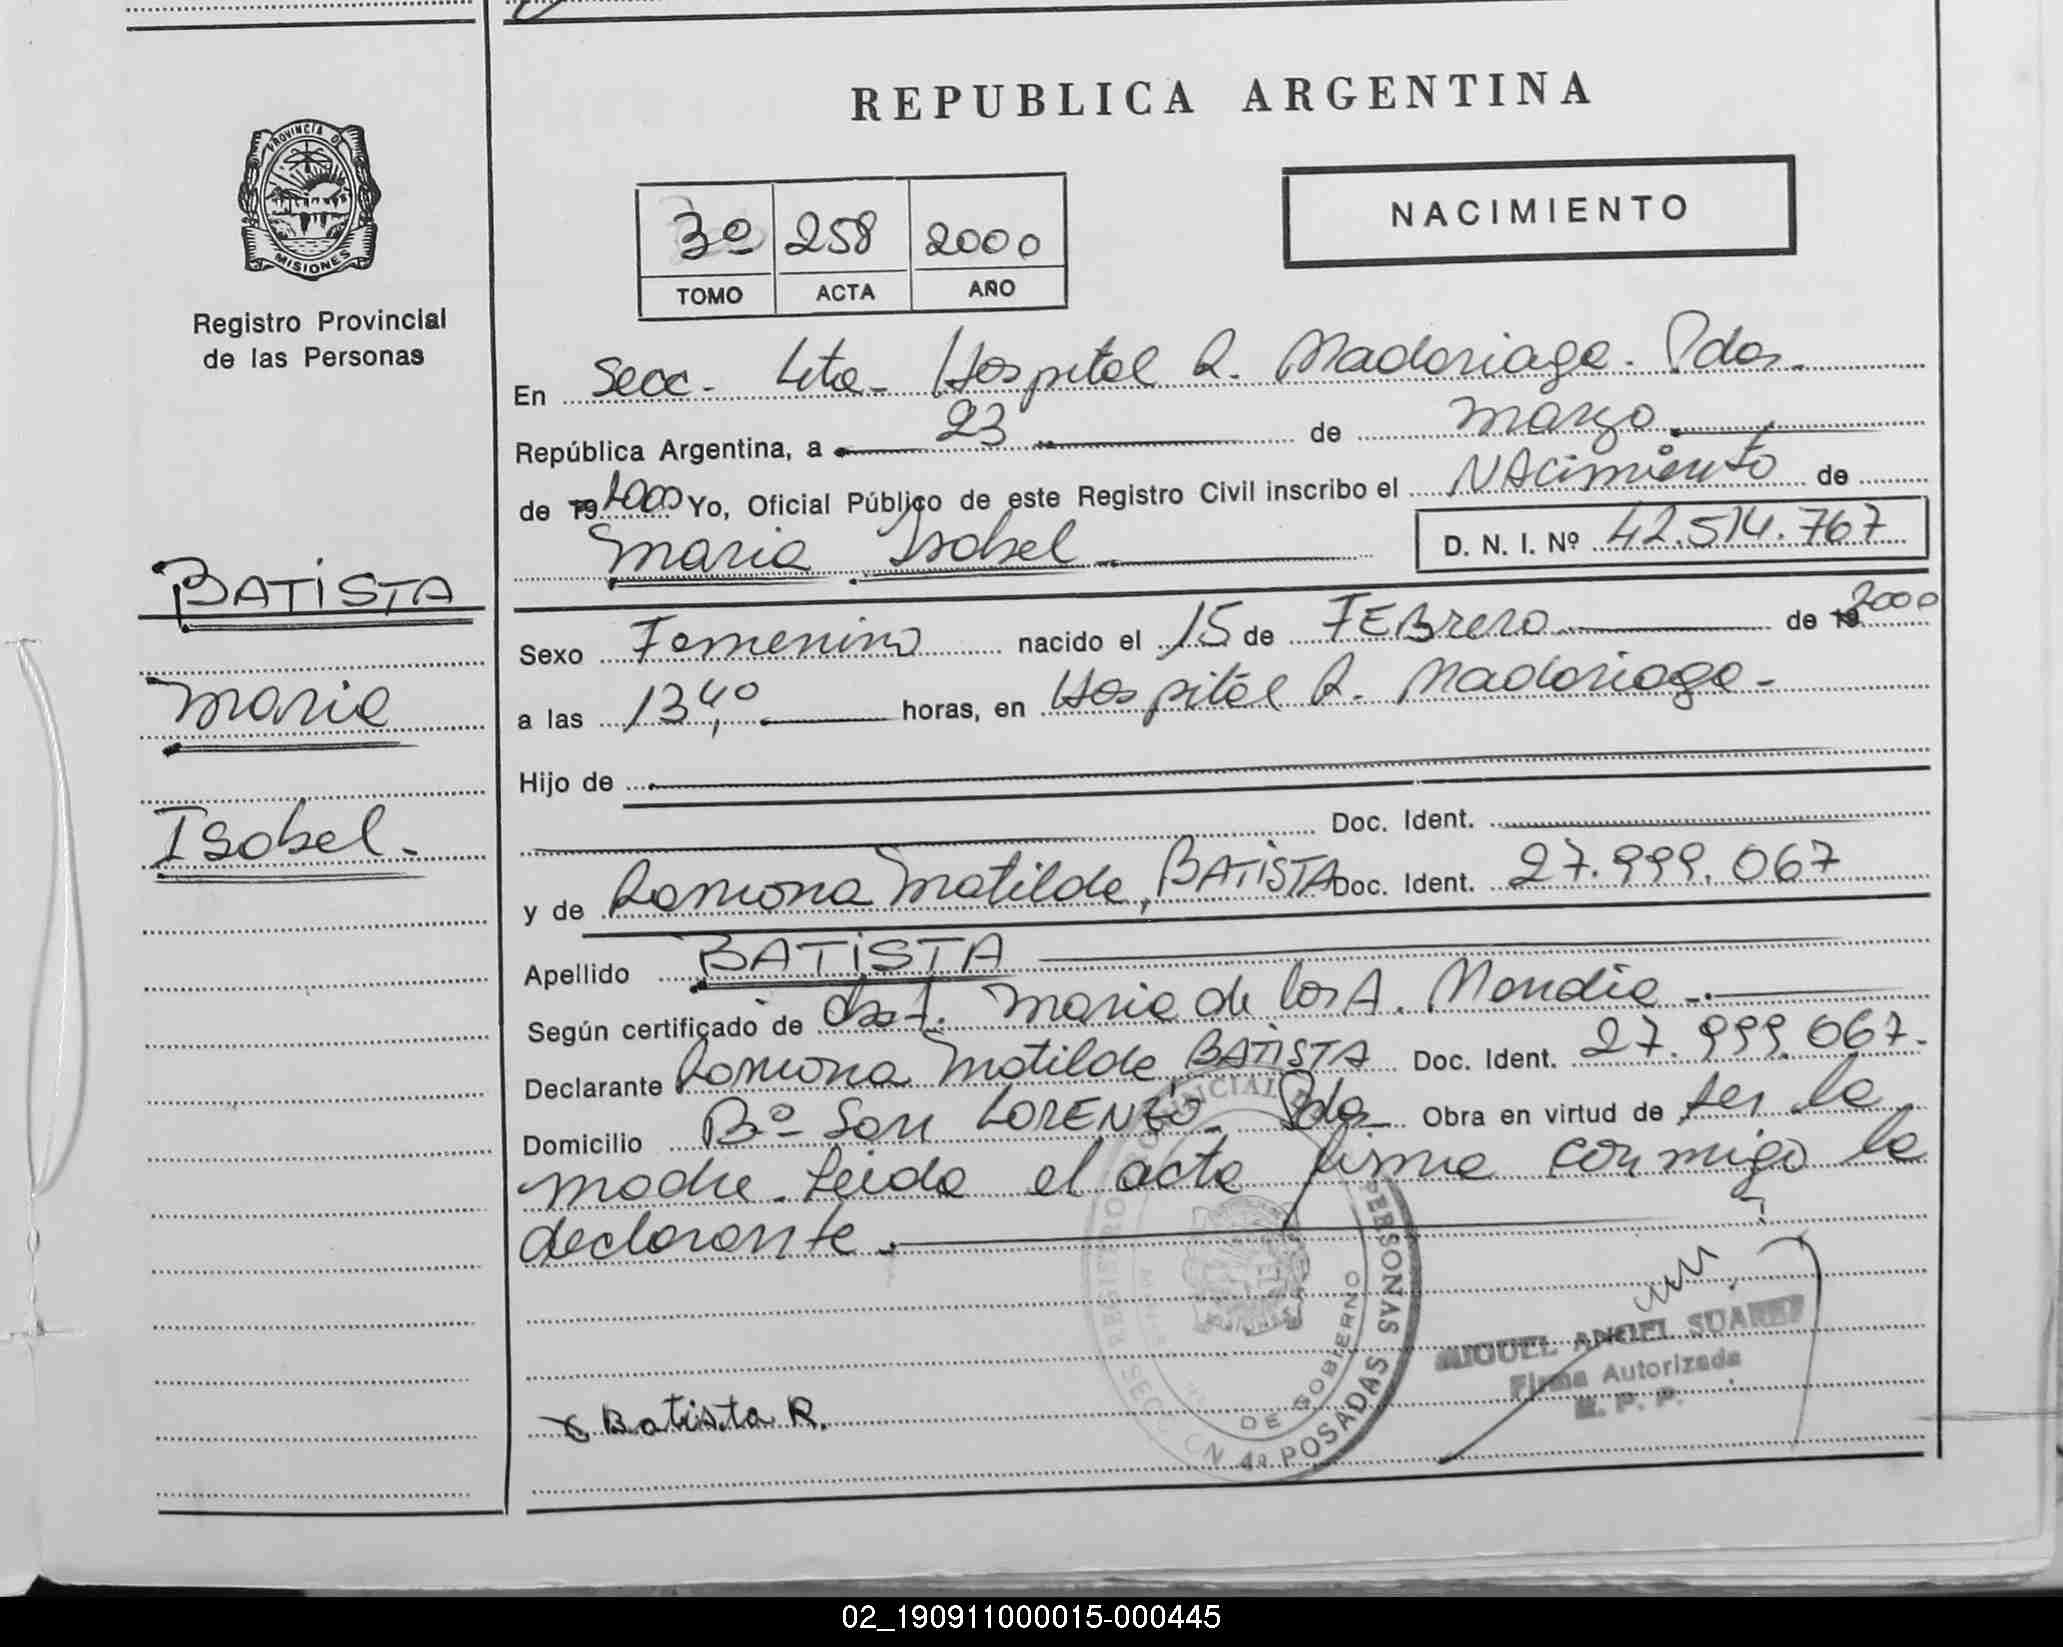 REPUBLICA ARGENTINA
PROVINCIA DE
MISIONES
Registro Provincial
de las Personas
3º 258 2000
TOMO ACTA AÑO
NACIMIENTO
En Secc. 4ta. Hospital R. Madariaga. Pdas.
República Argentina, a 23 de marzo
de 19 2000 Yo, Oficial Público de este Registro Civil inscribo el NAcimiento de
Maria Isabel D. N. I. Nº 42.514.767
BATISTA
Maria
Isabel.
Sexo Femenino nacido el 15 de FEBrero de 19 2000
a las 13,40 horas, en Hospital R. Madariaga.
Hijo de
Doc. Ident.
y de Ramona Matilde, BATISTA Doc. Ident. 27.999.067
Apellido BATISTA
Según certificado de Obst. Maria de los A. Mendia
Declarante Ramona Matilde BATISTA Doc. Ident. 27.999.067.
Domicilio Bº San LORENZO. Pdas Obra en virtud de ser la
madre. Leida el acta firma conmigo la
declarante.
REGISTRO PROVINCIAL DE PERSONAS
DE GOBIERNO
SECCION 4a POSADAS
MIGUEL ANGEL SUAREZ
Firma Autorizada
R. P. P.
x Batista R.
02_190911000015-000445